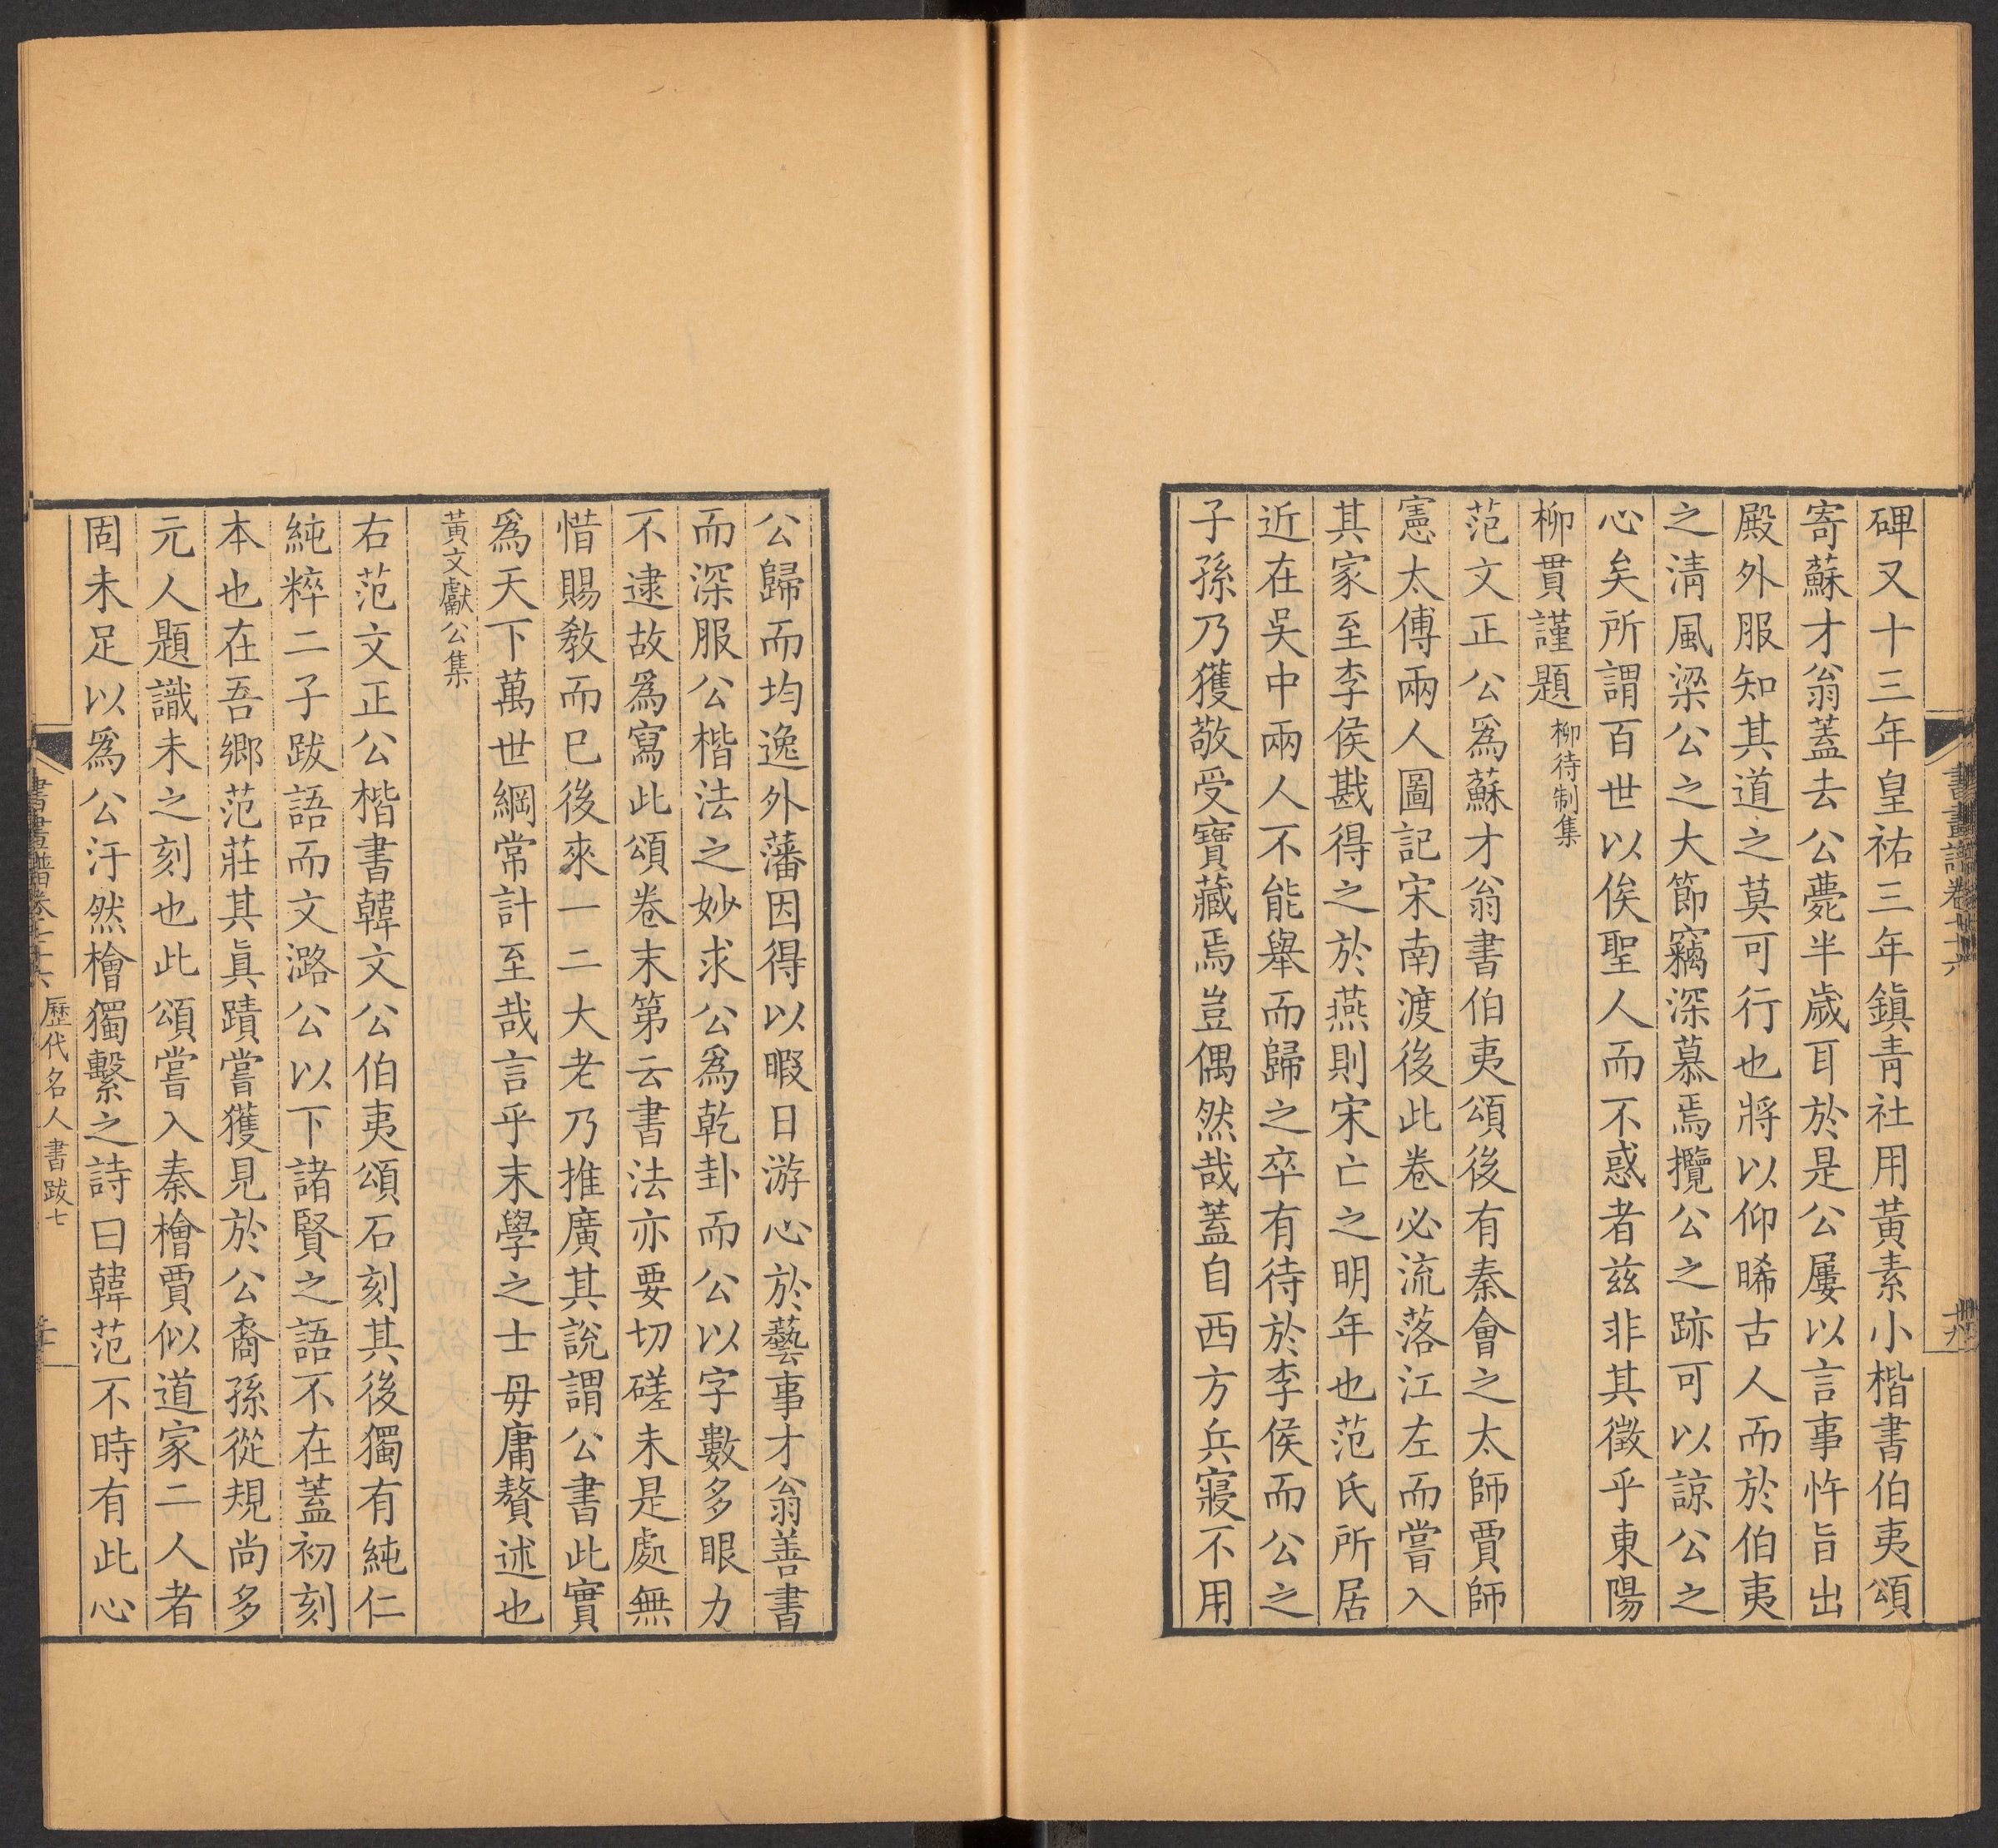 碑又十三年皇祐三年鎮青社用黃素小楷書伯夷頌
寄蘇才翁蓋去公薨半歲耳於是公屢以言事忤旨出
殿外服知其道之莫可行也將以仰晞古人而於伯夷
之清風梁公之大節竊深慕焉攬公之跡可以諒公之
心矣所謂百世以俟聖人而不惑者茲非其徵乎東陽
柳貫謹題柳待制集
范文正公爲蘇才翁書伯夷頌後有秦會之太師賈師
憲太傅兩人圖記宋南渡後此卷必流落江左而嘗入
其家至李侯戡得之於燕則宋亡之明年也范氏所居
近在吳中兩人不能舉而歸之卒有待於李侯而公之
子孫乃獲敬受寶藏焉豈偶然哉蓋自西方兵寢不用
公歸而均逸外藩因得以暇日游心於藝事才翁善書
而深服公楷法之妙求公爲乾卦而公以字數多眼力
不逮故爲寫此頌卷末第云書法亦要切磋未是處無
惜賜教而巳後來一二大老乃推廣其說謂公書此實
爲天下萬世綱常計至哉言乎末學之士毋庸贅述也
黃文獻公集
右范文正公楷書韓文公伯夷頌石刻其後獨有純仁
純粹二子跋語而文潞公以下諸賢之語不在蓋初刻
本也在吾鄉范莊其眞蹟嘗獲見於公裔孫從規尚多
元人題識未之刻也此頌嘗入秦檜賈似道家二人者
固未足以爲公汙然檜獨繫之詩曰韓范不時有此心
歷代名人書跋七